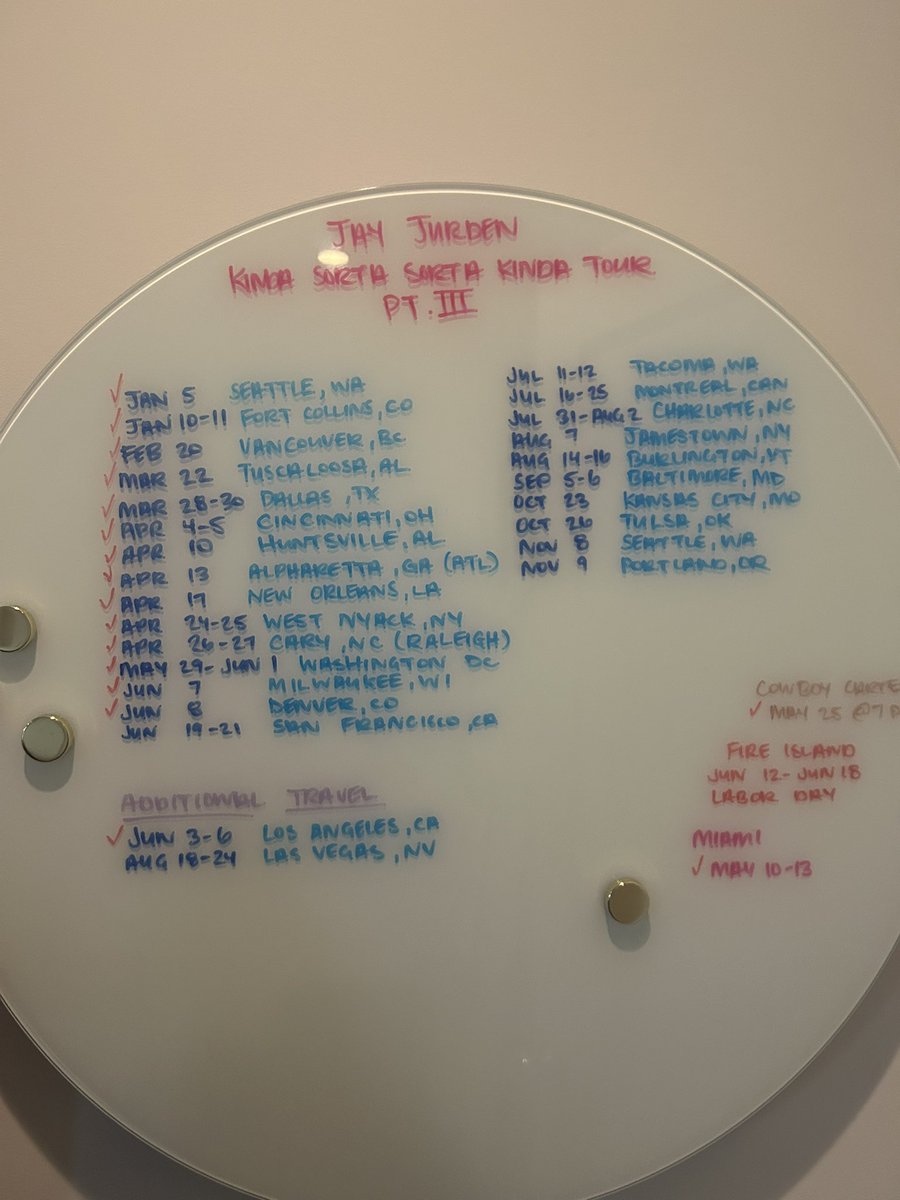 JAY JURDEN
KINDA SORTA SORTA KINDA TOUR
PT. III
✓ JAN 5 SEATTLE, WA
✓ JAN 10-11 FORT COLLINS, CO
✓ FEB 20 VANCOUVER, BC
✓ MAR 22 TUSCALOOSA, AL
✓ MAR 28-30 DALLAS, TX
✓ APR 4-5 CINCINNATI, OH
✓ APR 10 HUNTSVILLE, AL
✓ APR 13 ALPHARETTA, GA (ATL)
✓ APR 17 NEW ORLEANS, LA
✓ APR 24-25 WEST NYACK, NY
✓ APR 26-27 CARY, NC (RALEIGH)
✓ MAY 29-JUN 1 WASHINGTON DC
✓ JUN 7 MILWAUKEE, WI
✓ JUN 8 DENVER, CO
JUN 19-21 SAN FRANCISCO, CA
JUL 11-12 TACOMA, WA
JUL 16-25 MONTREAL, CAN
JUL 31-AUG 2 CHARLOTTE, NC
AUG 7 JAMESTOWN, NY
AUG 14-16 BURLINGTON, VT
SEP 5-6 BALTIMORE, MD
OCT 23 KANSAS CITY, MO
OCT 26 TULSA, OK
NOV 8 SEATTLE, WA
NOV 9 PORTLAND, OR
ADDITIONAL TRAVEL
✓ JUN 3-6 LOS ANGELES, CA
AUG 18-24 LAS VEGAS, NV
COWBOY CARTE
✓ MAY 25 @7
FIRE ISLAND
JUN 12-JUN 18
LABOR DAY
MIAMI
✓ MAY 10-13